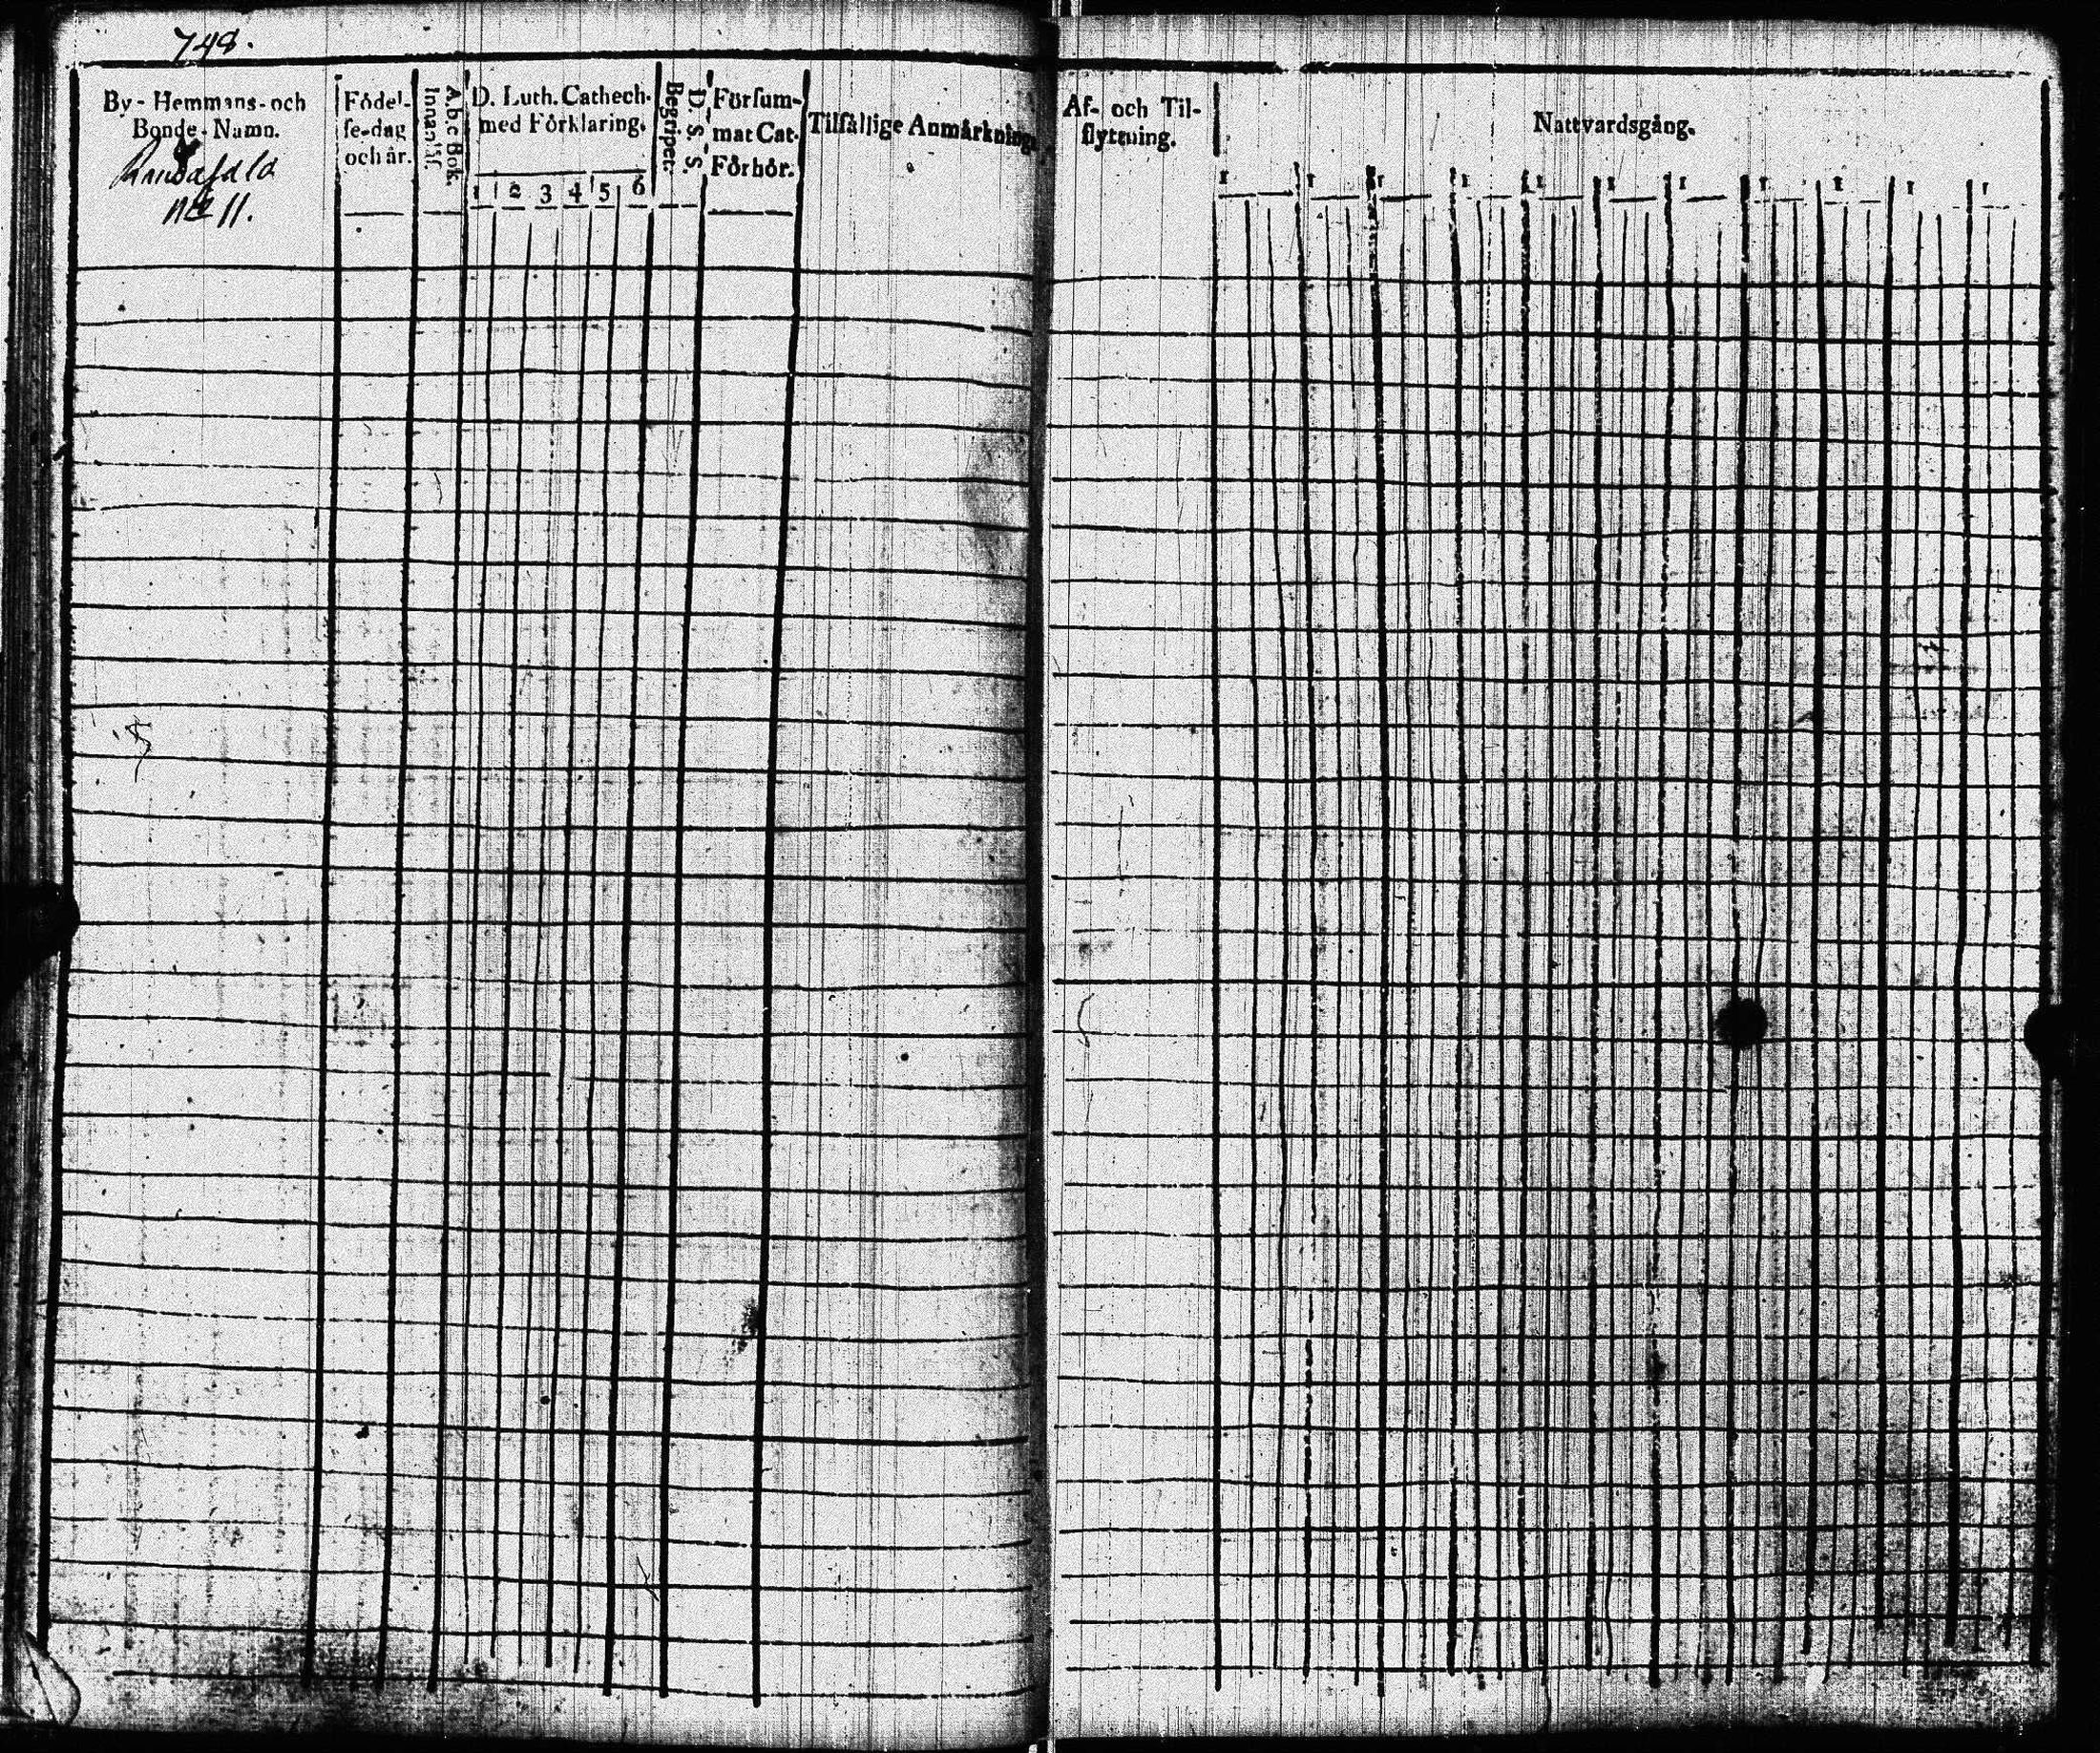 748.
By- Hemmans- och
Bonde- Namn.
No 11.
Födel-
se-dag
och år.
A.b.c Bok.
Innan läs.
D. Luth. Cathech.
med Förklaring.
1 2 3 4 5 6
D. S. S.
Begriper.
Försum-
mat Cat.
Förhör.
Tilfällige Anmärkning
Af- och Til-
flyttning.
Nattvardsgång.
1 1 1 1 1 1 1 1 1 1 1